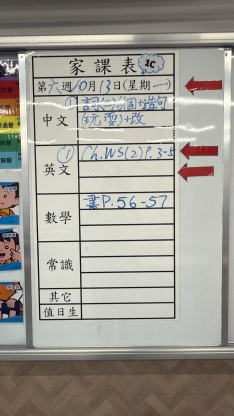 家課表 1C
第六週10月13日(星期一)
中文
① 詞(二)2圈+造句
(玩耍)+改
英文
① Ch.WS(2)P.3-5
數學
書P.56-57
常識
其它
值日生